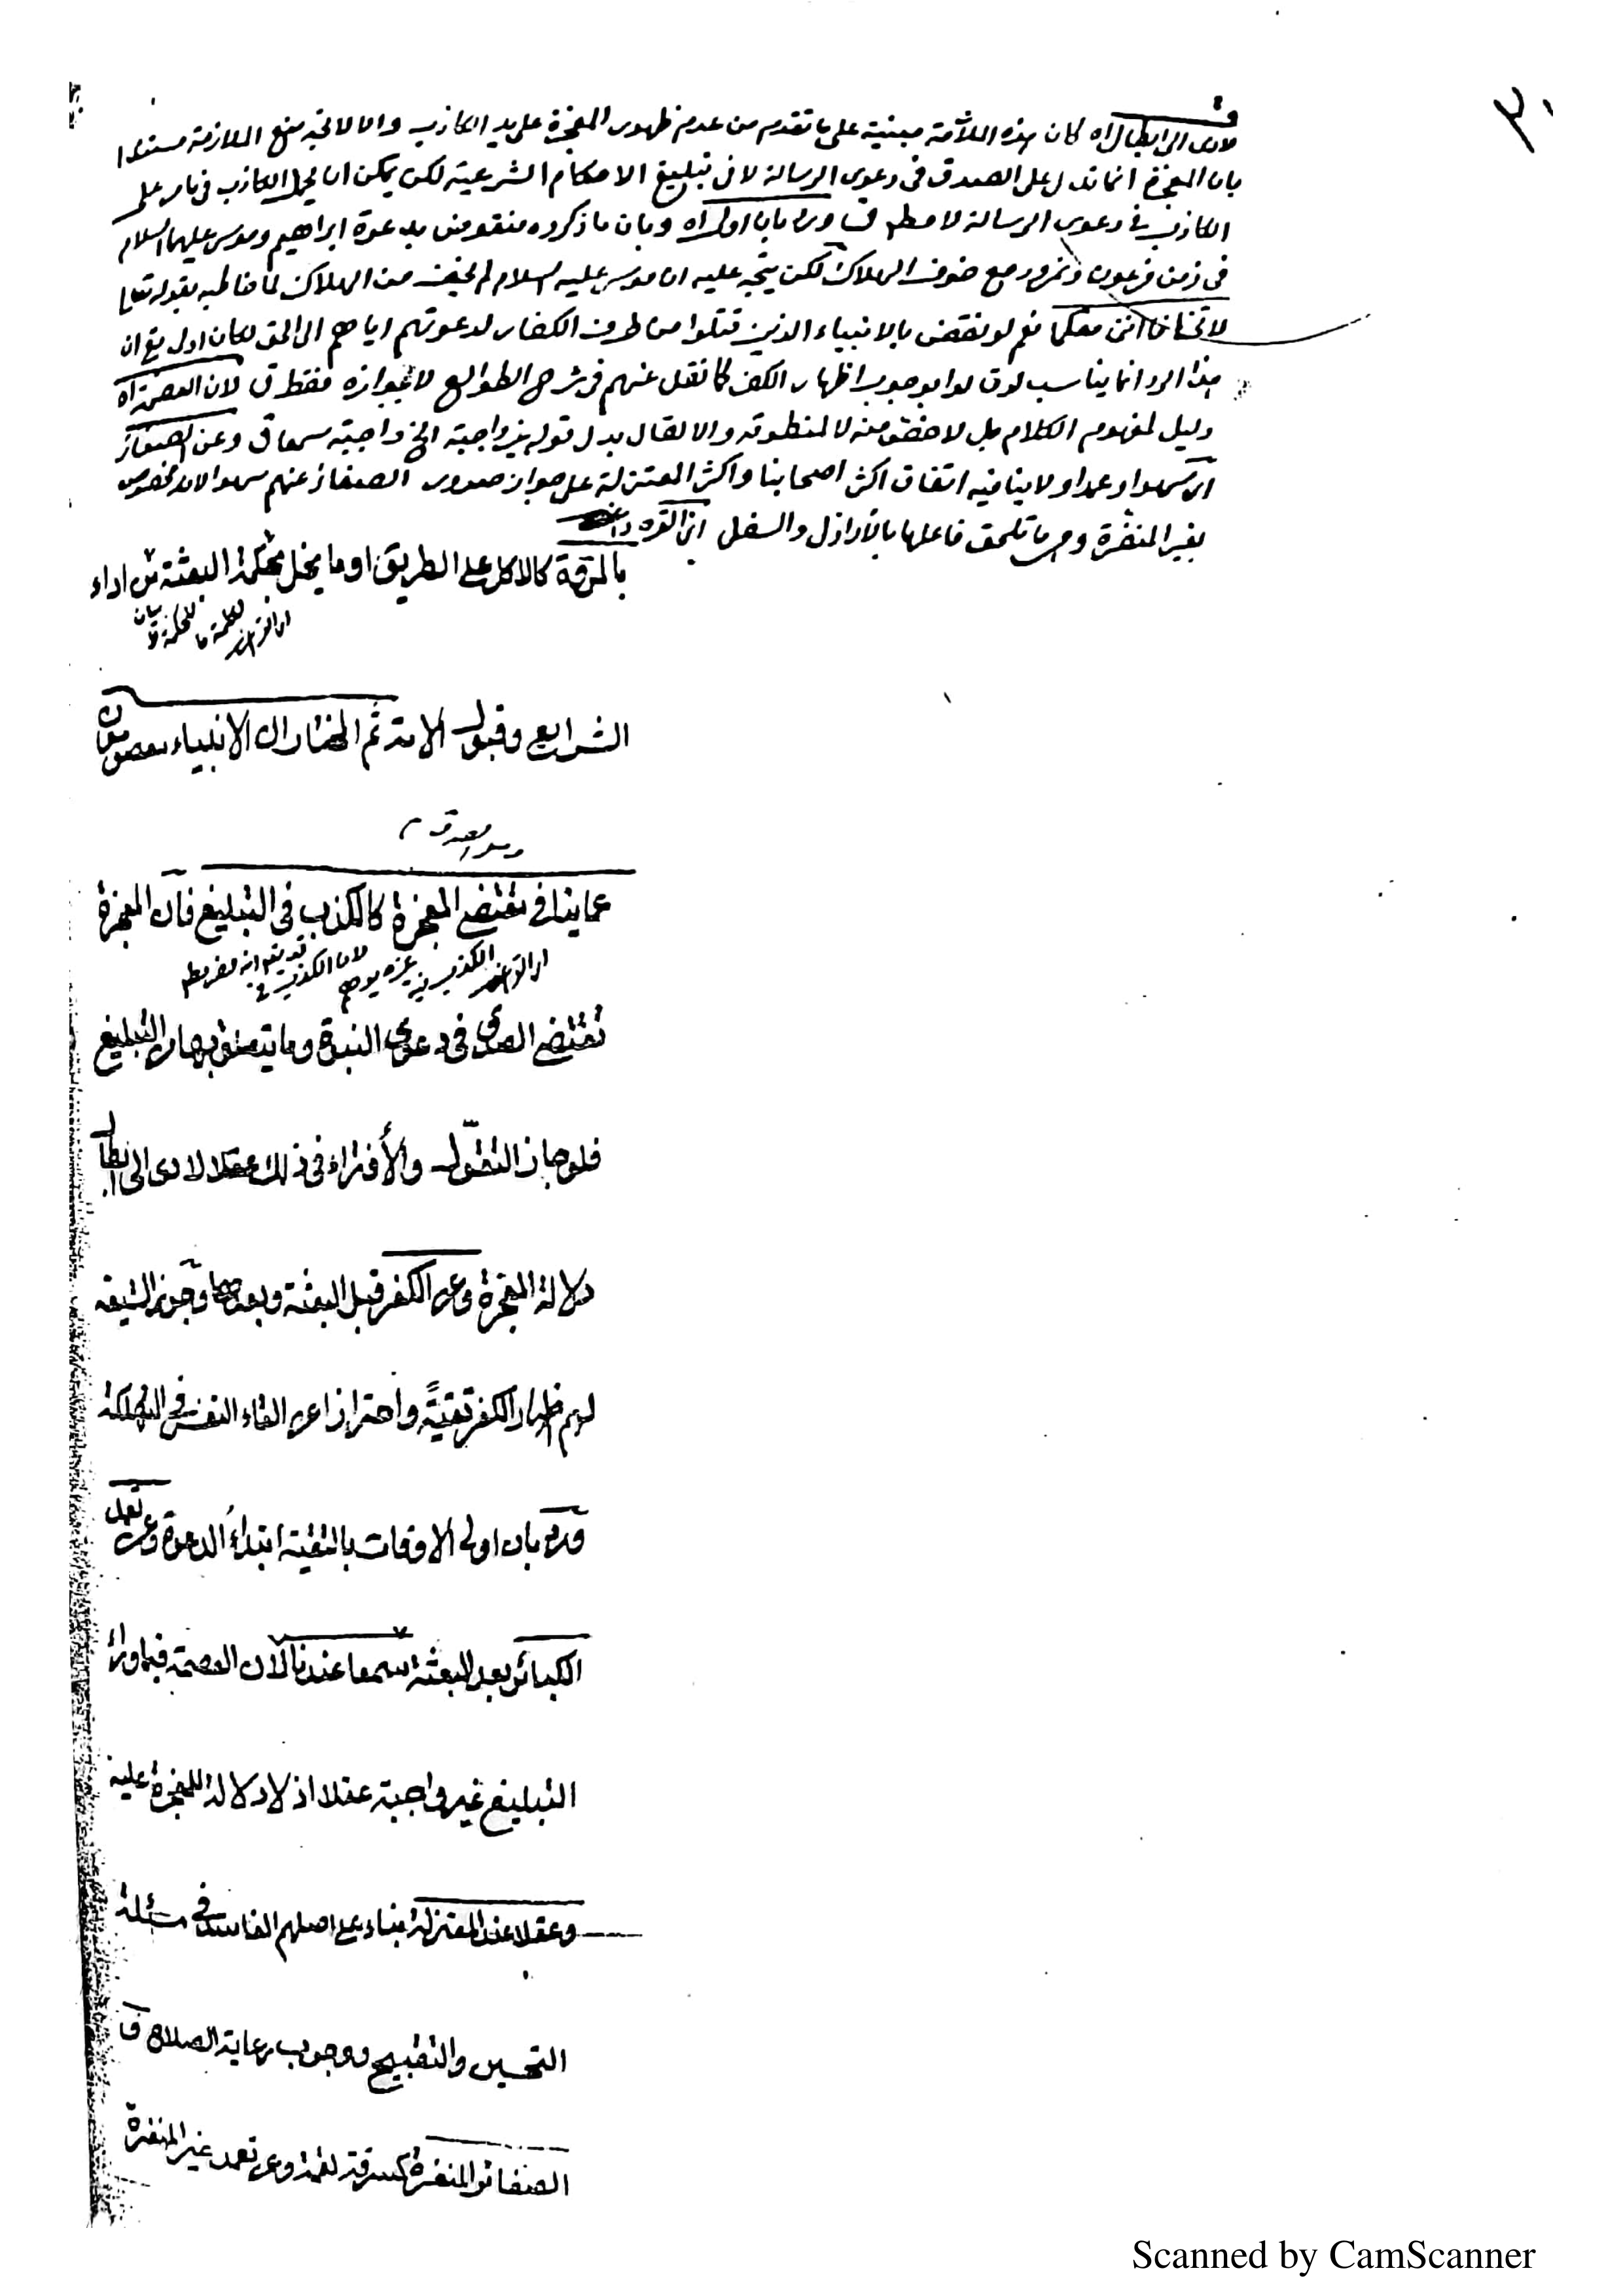 ٣٠
لادى الى ابطال اه كان هذه الملازمة مبنية على ما تقدم من عدم ظهور المعجزة على يد الكاذب والا لاتجه منع الملازمة مستندا
بان المعجزة انما تدل على الصدق في دعوى الرسالة لا في تبليغ الاحكام الشرعية لكن يمكن ان
الكاذب في دعوى الرسالة ورد بان اولى اه وبان ما ذكروه منقوض بدعوة ابراهيم وموسى عليهما السلام
في زمن فرعون ونمرود مع خوف الهلاك لكن يتجه عليه ان موسى عليه السلام لم يخف من الهلاك لما خاطبه بقوله تعالى
لا تخافا انني معكما نعم لو نقض بالانبياء الذين قتلوا من طرف الكفار لدعوتهم اياهم الى الحق لكان اولى مع ان
هذا الرد انما يناسب لو قالوا بوجوب اظهار الكفر كما نقل عنهم في شرح الطوالع لا بجوازه فقط ق لان العصمة اه
دليل لمفهوم الكلام بل لاخص منه لا لمنطوقه والا لقال بدل قوله غير واجبة الخ واجبة سمعا ق وعن الصغائر
اي سهوا وعمدا ولا ينافيه اتفاق اكثر اصحابنا واكثر المعتزلة على جواز صدور الصغائر عنهم سهوا لانه مخصوص
بغير المنفرة وهي ما تلحق فاعلها بالاراذل والسفلى
بالمرقة كالاكل على الطريق او ما يخل بحكمة البعثة من اداء
الشرايع وقبول الامة ثم المختار ان الانبياء معصومون
عما ينافي مقتضى المعجزة كالكذب في التبليغ فان المعجزة
تقتضي الصدق في دعوى النبوة وما يتعلق بها من التبليغ
فلو جاز التقول والافتراء في ذلك عقلا لادى الى ابطال
دلالة المعجزة وعن الكفر قبل البعثة وبعدها وجوز الشيعة
لهم اظهار الكفر تقية واحترازا عن القاء النفس في التهلكة
ورد بان اولى الاوقات بالتقية ابتداء الدعوة وعن تعمد
الكبائر بعد البعثة سمعا عندنا لان العصمة فيما وراء
التبليغ غير واجبة عقلا اذ لا دلالة للمعجزة عليه
وعقلا عند المعتزلة بناء على اصلهم الفاسد في مسئلة
التحسين والتقبيح ووجوب رعاية الصلاح
الصغائر المنفرة كسرقة لقمة وعن تعمد غير المنفرة
Scanned by CamScanner